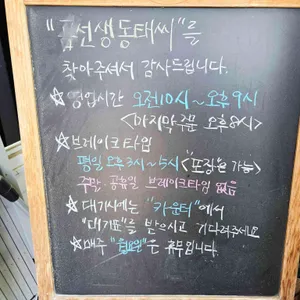 "곰선생동태씨"를
찾아주셔서 감사드립니다.
영업시간 오전10시~오후9시
<마지막주문 오후8시>
브레이크타임
평일오후3시~5시<포장은 가능>
주말·공휴일 브레이크타임 없음
대기시에는 "카운터"에서
"대기표"를 받으시고 기다려주세요
매주 "월요일"은 휴무입니다.